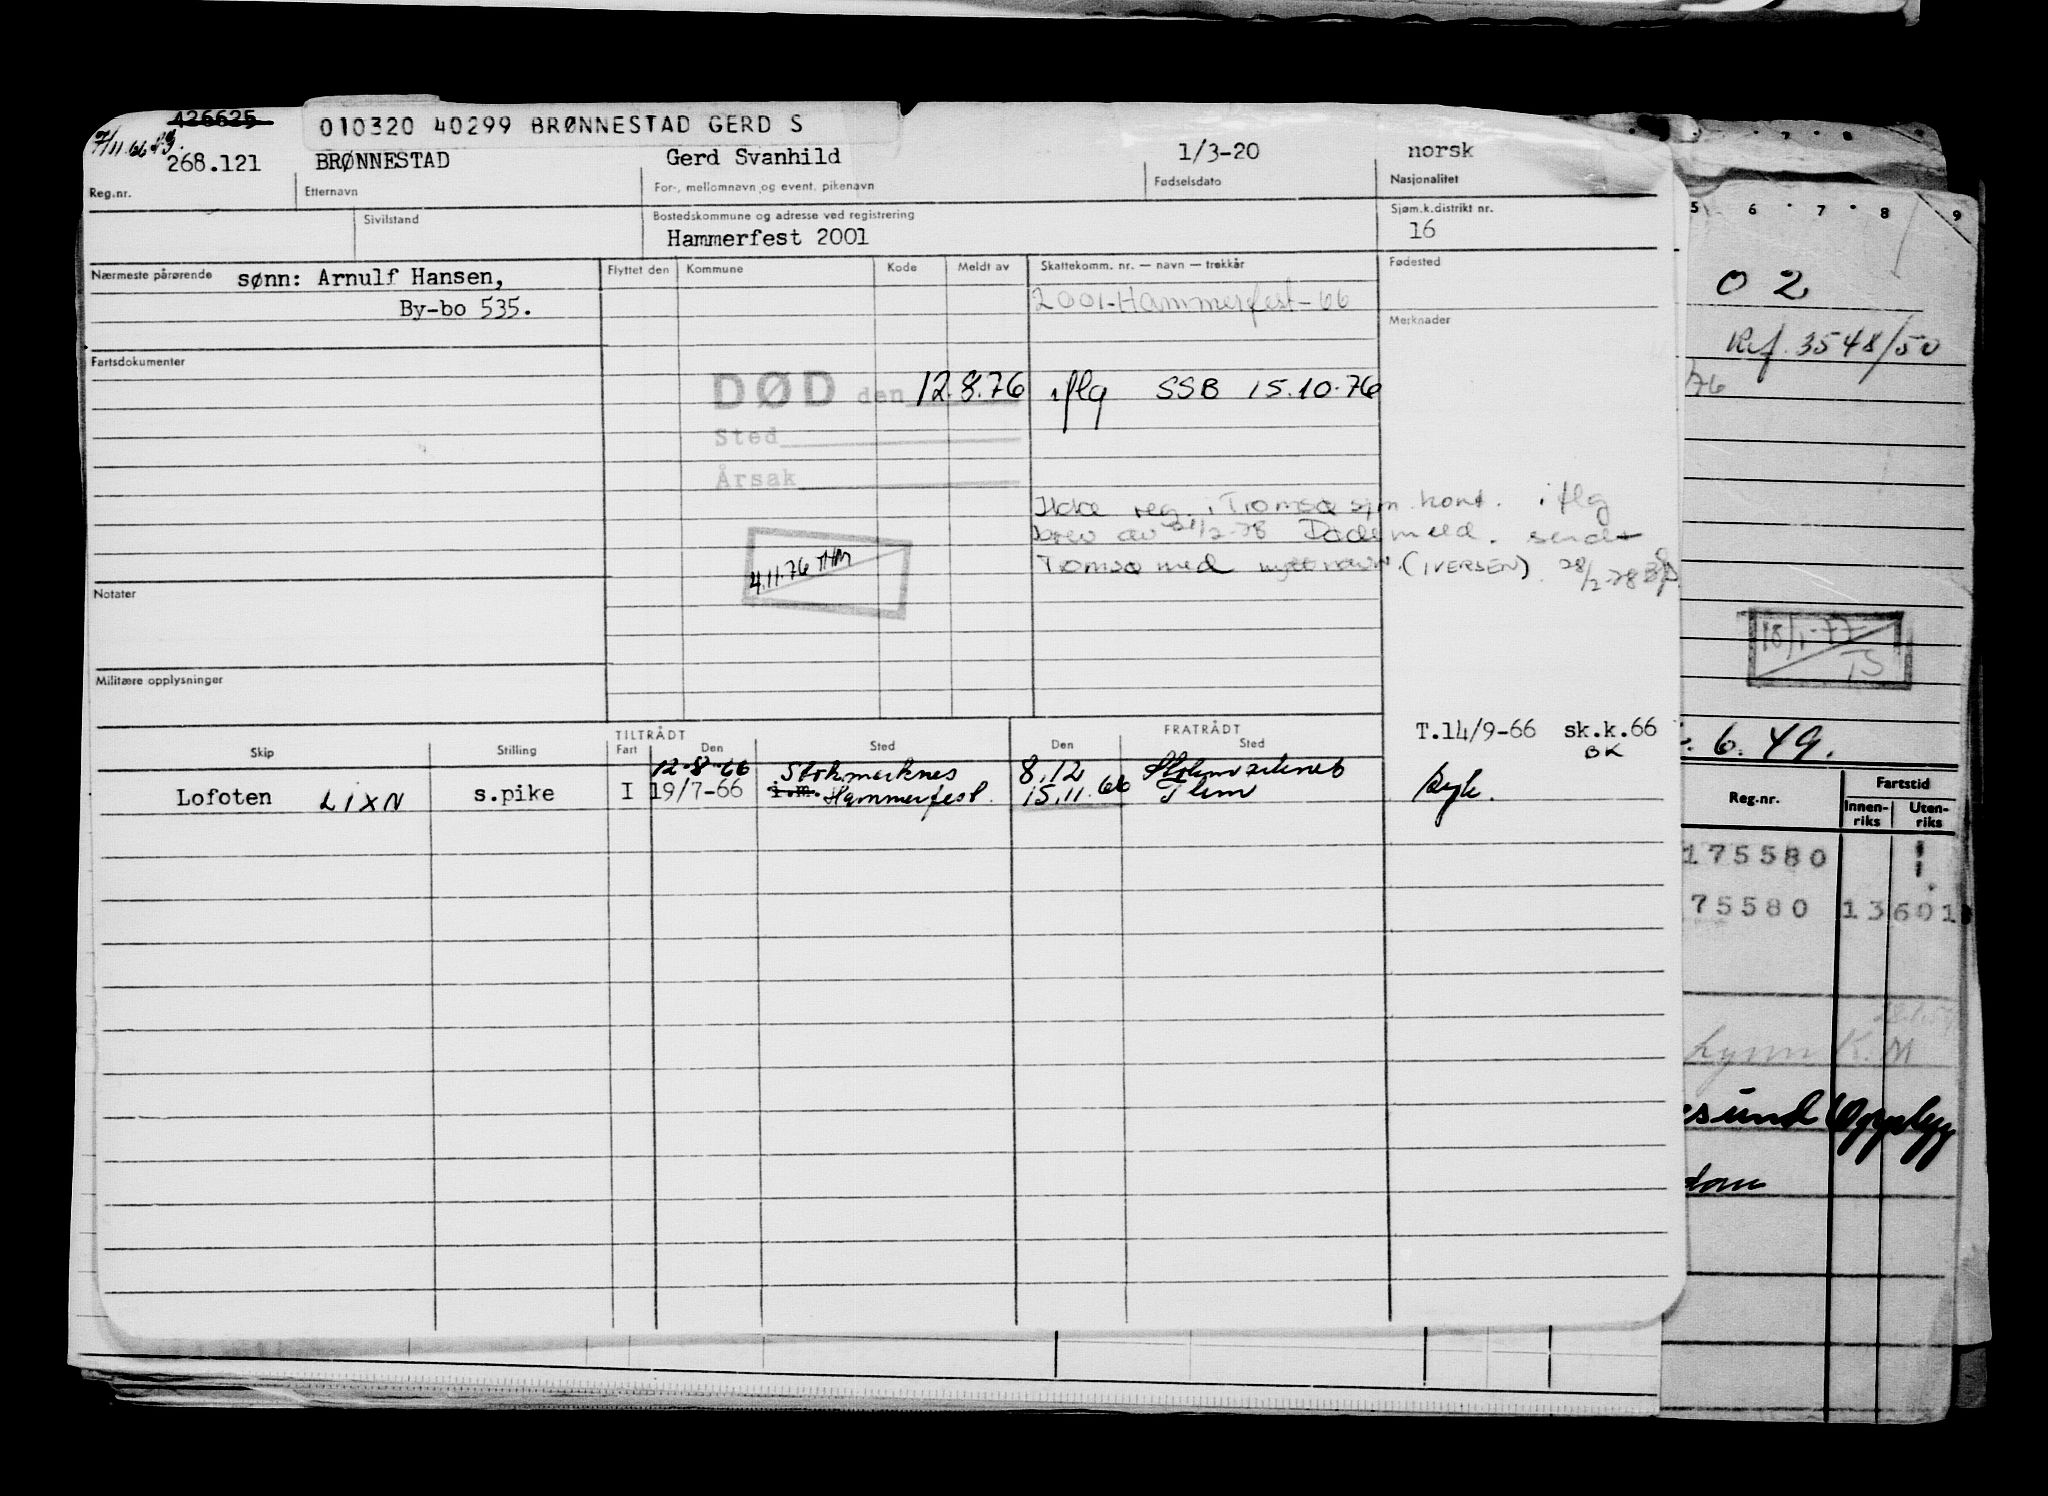 426625
010320 40299 BRØNNESTAD GERD S
7/11.66
268.121 BRØNNESTAD Gerd Svanhild 1/3-20 norsk
Reg.nr. Etternavn For-, mellomnavn og event. pikenavn Fødselsdato Nasjonalitet
Sivilstand Bostedskommune og adresse ved registrering Sjøm.k.distrikt nr.
Hammerfest 2001 16
Nærmeste pårørende sønn: Arnulf Hansen, Flyttet den Kommune Kode Meldt av Skattekomm. nr. — navn — trekkår Fødested
By-bo 535. 2001-Hammerfest-66
Merknader
Fartsdokumenter
DØD den 12.8.76 iflg SSB 15.10.76
Sted
Årsak
Ikke reg. i Tromsø sjm. kont. iflg
brev av 21/2-78 Dødsmeld. sendt
Tromsø med nytt navn. (IVERSEN). 28/2-78
4.11.76 THM
Notater
Militære opplysninger
T.14/9-66 sk.k.66
BK
TILTRÅDT FRATRÅDT
Skip Stilling Fart Den Sted Den Sted
12-8-66 Stokmarknes 8.12 Stokmarknes
Lofoten LIXN s.pike I 19/7-66 i.m. Hammerfest. 15.11.66 T.heim
5 6 7 8 9
0 2
Ref. 3548/50
/76
18/1-77
TS
6.49.
Reg.nr. Fartstid
Innen-riks Uten-riks
175580 1
75580 13 601
Lynn K.M
esund Opplegg
dam